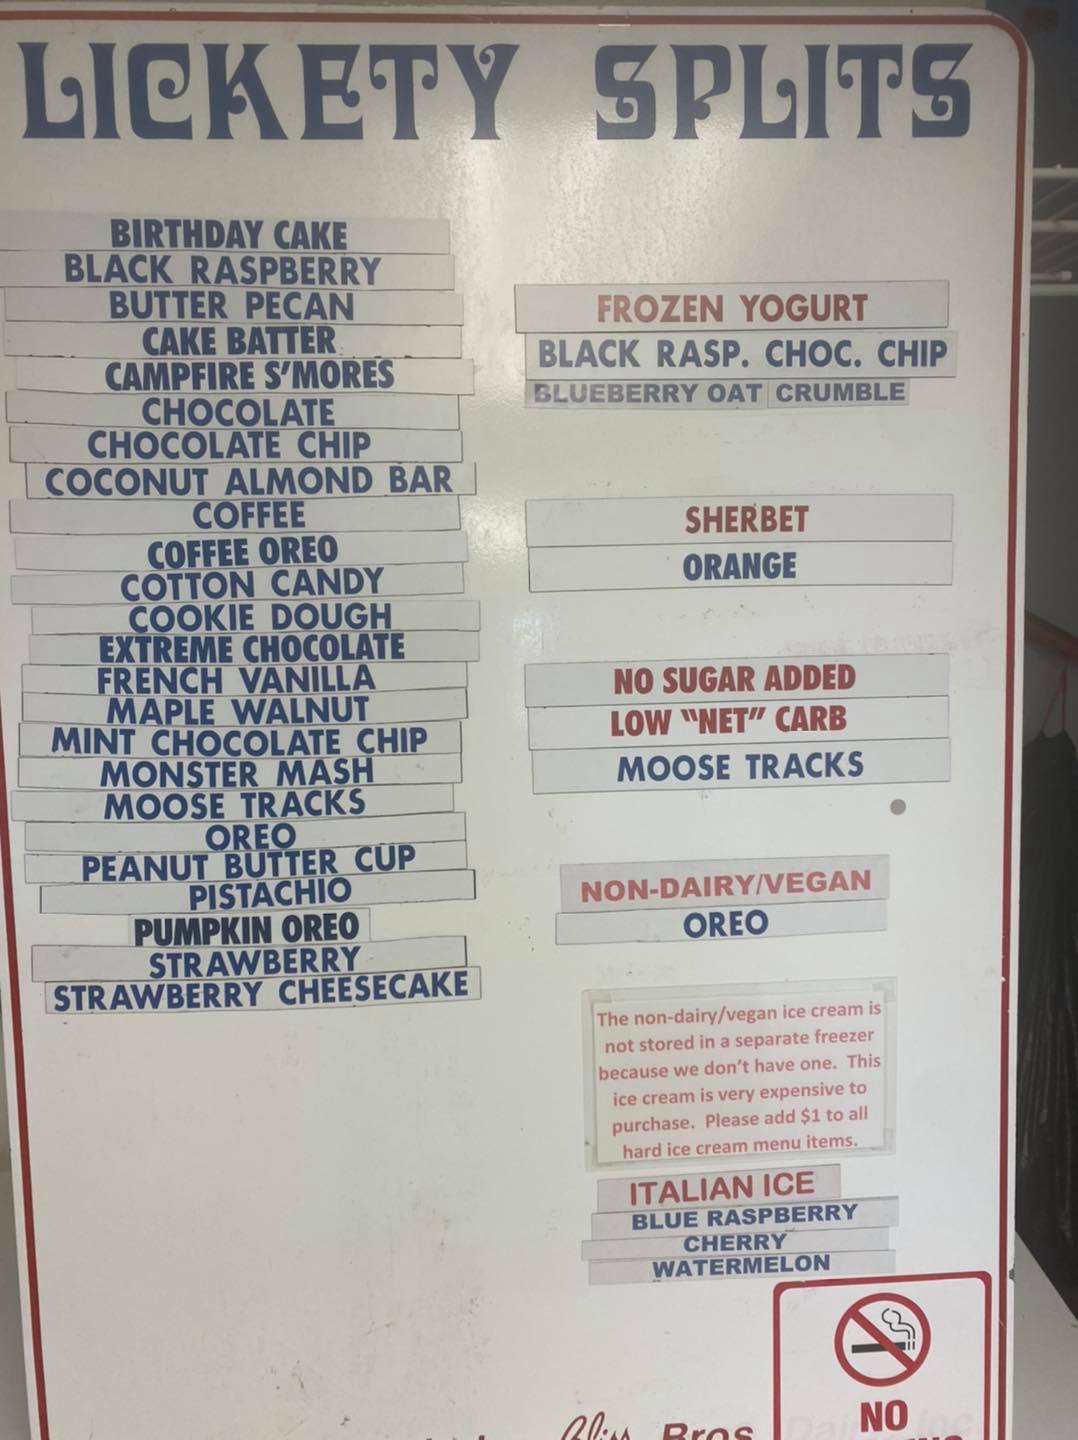 LICKETY SPLITS
BIRTHDAY CAKE
BLACK RASPBERRY
BUTTER PECAN
CAKE BATTER
CAMPFIRE S'MORES
CHOCOLATE
CHOCOLATE CHIP
COCONUT ALMOND BAR
COFFEE
COFFEE OREO
COTTON CANDY
COOKIE DOUGH
EXTREME CHOCOLATE
FRENCH VANILLA
MAPLE WALNUT
MINT CHOCOLATE CHIP
MONSTER MASH
MOOSE TRACKS
OREO
PEANUT BUTTER CUP
PISTACHIO
PUMPKIN OREO
STRAWBERRY
STRAWBERRY CHEESECAKE
FROZEN YOGURT
BLACK RASP. CHOC. CHIP
BLUEBERRY OAT CRUMBLE
SHERBET
ORANGE
NO SUGAR ADDED
LOW "NET" CARB
MOOSE TRACKS
NON-DAIRY/VEGAN
OREO
The non-dairy/vegan ice cream is
not stored in a separate freezer
because we don't have one. This
ice cream is very expensive to
purchase. Please add $1 to all
hard ice cream menu items.
ITALIAN ICE
BLUE RASPBERRY
CHERRY
WATERMELON
NO
Bliss Bros Dairy Inc